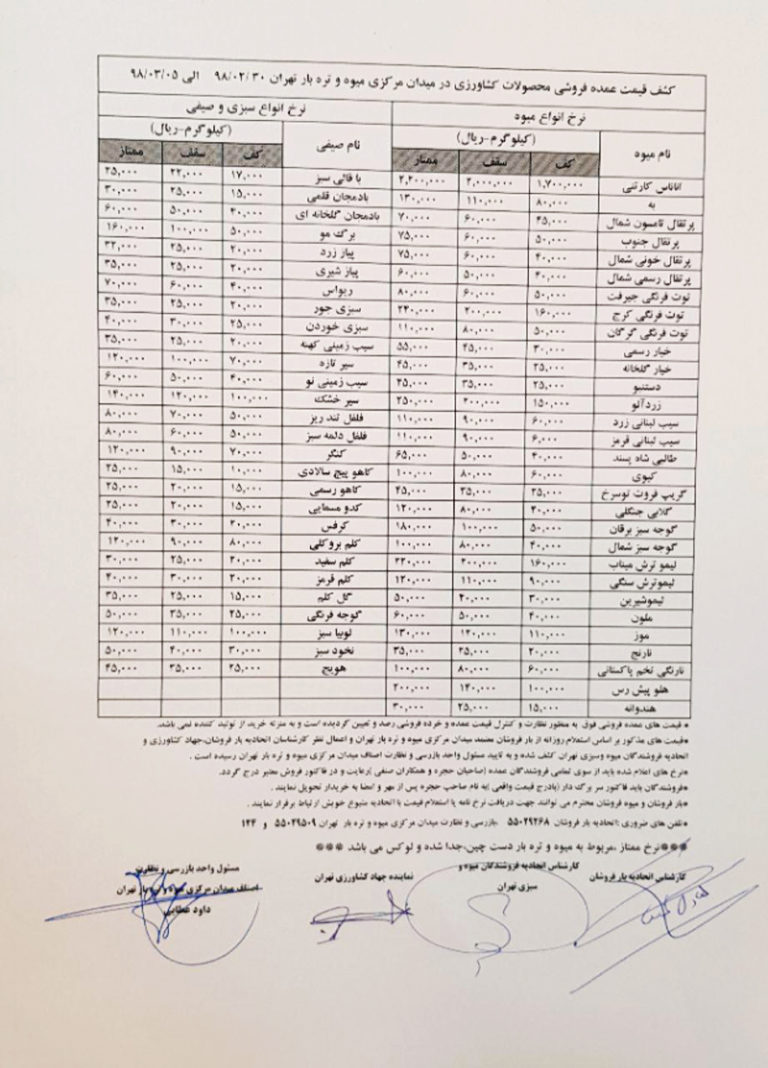 کشف قیمت عمده فروشی محصولات کشاورزی در میدان مرکزی میوه و تره بار تهران ۹۸/۰۲/۳۰ الی ۹۸/۰۳/۰۵
نرخ انواع میوه نرخ انواع سبزی و صیفی
نام میوه (کیلوگرم-ریال) نام صیفی (کیلوگرم-ریال)
کف سقف ممتاز کف سقف ممتاز
اناناس کارتنی ۱,۷۰۰,۰۰۰ ۲,۰۰۰,۰۰۰ ۲,۲۰۰,۰۰۰ با قالی سبز ۱۷,۰۰۰ ۲۲,۰۰۰ ۲۵,۰۰۰
به ۸۰,۰۰۰ ۱۱۰,۰۰۰ ۱۳۰,۰۰۰ بادمجان قلمی ۱۵,۰۰۰ ۲۵,۰۰۰ ۳۰,۰۰۰
پرتقال تامسون شمال ۴۵,۰۰۰ ۶۰,۰۰۰ ۷۰,۰۰۰ بادمجان گلخانه ای ۴۰,۰۰۰ ۵۰,۰۰۰ ۶۰,۰۰۰
پرتقال جنوب ۵۰,۰۰۰ ۶۰,۰۰۰ ۷۵,۰۰۰ برگ مو ۵۰,۰۰۰ ۱۰۰,۰۰۰ ۱۶۰,۰۰۰
پرتقال خونی شمال ۴۰,۰۰۰ ۶۰,۰۰۰ ۷۵,۰۰۰ پیاز زرد ۲۰,۰۰۰ ۲۵,۰۰۰ ۳۲,۰۰۰
پرتقال رسمی شمال ۴۰,۰۰۰ ۵۰,۰۰۰ ۶۰,۰۰۰ پیاز شیری ۲۰,۰۰۰ ۲۵,۰۰۰ ۳۵,۰۰۰
توت فرنگی جیرفت ۵۰,۰۰۰ ۶۰,۰۰۰ ۸۰,۰۰۰ ریواس ۴۰,۰۰۰ ۶۰,۰۰۰ ۷۰,۰۰۰
توت فرنگی کرج ۱۶۰,۰۰۰ ۲۰۰,۰۰۰ ۲۴۰,۰۰۰ سبزی جور ۲۰,۰۰۰ ۲۵,۰۰۰ ۳۵,۰۰۰
توت فرنگی گرگان ۵۰,۰۰۰ ۸۰,۰۰۰ ۱۱۰,۰۰۰ سبزی خوردن ۲۵,۰۰۰ ۳۰,۰۰۰ ۴۰,۰۰۰
خیار رسمی ۳۰,۰۰۰ ۴۵,۰۰۰ ۵۵,۰۰۰ سیب زمینی کهنه ۲۰,۰۰۰ ۲۵,۰۰۰ ۳۵,۰۰۰
خیار گلخانه ۲۵,۰۰۰ ۳۵,۰۰۰ ۴۵,۰۰۰ سیر تازه ۷۰,۰۰۰ ۱۰۰,۰۰۰ ۱۲۰,۰۰۰
دستنبو ۲۵,۰۰۰ ۳۵,۰۰۰ ۴۵,۰۰۰ سیب زمینی نو ۴۰,۰۰۰ ۵۰,۰۰۰ ۶۰,۰۰۰
زردآلو ۱۵۰,۰۰۰ ۲۰۰,۰۰۰ ۲۵۰,۰۰۰ سیر خشک ۱۰۰,۰۰۰ ۱۲۰,۰۰۰ ۱۴۰,۰۰۰
سیب لبنانی زرد ۶۰,۰۰۰ ۹۰,۰۰۰ ۱۱۰,۰۰۰ فلفل تند ریز ۵۰,۰۰۰ ۷۰,۰۰۰ ۸۰,۰۰۰
سیب لبنانی قرمز ۶,۰۰۰ ۹۰,۰۰۰ ۱۱۰,۰۰۰ فلفل دلمه سبز ۵۰,۰۰۰ ۶۰,۰۰۰ ۸۰,۰۰۰
طالبی شاه پسند ۴۰,۰۰۰ ۵۰,۰۰۰ ۶۵,۰۰۰ کنگر ۷۰,۰۰۰ ۹۰,۰۰۰ ۱۲۰,۰۰۰
کیوی ۶۰,۰۰۰ ۸۰,۰۰۰ ۱۰۰,۰۰۰ کاهو پیچ سالادی ۱۰,۰۰۰ ۱۵,۰۰۰ ۲۵,۰۰۰
گریپ فروت توسرخ ۲۵,۰۰۰ ۳۵,۰۰۰ ۴۵,۰۰۰ کاهو رسمی ۱۵,۰۰۰ ۲۰,۰۰۰ ۲۵,۰۰۰
گلابی جنگلی ۴۰,۰۰۰ ۸۰,۰۰۰ ۱۲۰,۰۰۰ کدو مسمایی ۱۵,۰۰۰ ۲۰,۰۰۰ ۲۵,۰۰۰
گوجه سبز برقان ۵۰,۰۰۰ ۱۰۰,۰۰۰ ۱۸۰,۰۰۰ کرفس ۲۰,۰۰۰ ۳۰,۰۰۰ ۴۰,۰۰۰
گوجه سبز شمال ۴۰,۰۰۰ ۸۰,۰۰۰ ۱۰۰,۰۰۰ کلم بروکلی ۸۰,۰۰۰ ۹۰,۰۰۰ ۱۲۰,۰۰۰
لیمو ترش میناب ۱۶۰,۰۰۰ ۲۰۰,۰۰۰ ۲۲۰,۰۰۰ کلم سفید ۲۰,۰۰۰ ۲۵,۰۰۰ ۳۰,۰۰۰
لیموترش سنگی ۹۰,۰۰۰ ۱۱۰,۰۰۰ ۱۲۰,۰۰۰ کلم قرمز ۲۰,۰۰۰ ۳۰,۰۰۰ ۴۰,۰۰۰
لیموشیرین ۳۰,۰۰۰ ۴۰,۰۰۰ ۵۰,۰۰۰ گل کلم ۱۵,۰۰۰ ۲۵,۰۰۰ ۳۵,۰۰۰
ملون ۴۰,۰۰۰ ۵۰,۰۰۰ ۶۰,۰۰۰ گوجه فرنگی ۲۵,۰۰۰ ۳۵,۰۰۰ ۵۰,۰۰۰
موز ۱۱۰,۰۰۰ ۱۲۰,۰۰۰ ۱۳۰,۰۰۰ لوبیا سبز ۱۰۰,۰۰۰ ۱۱۰,۰۰۰ ۱۲۰,۰۰۰
نارنج ۲۰,۰۰۰ ۲۵,۰۰۰ ۳۵,۰۰۰ نخود سبز ۳۰,۰۰۰ ۴۰,۰۰۰ ۵۰,۰۰۰
نارنگی تخم پاکستانی ۶۰,۰۰۰ ۸۰,۰۰۰ ۱۰۰,۰۰۰ هویج ۲۵,۰۰۰ ۳۵,۰۰۰ ۴۵,۰۰۰
هلو پیش رس ۱۰۰,۰۰۰ ۱۴۰,۰۰۰ ۲۰۰,۰۰۰
هندوانه ۱۵,۰۰۰ ۲۵,۰۰۰ ۳۰,۰۰۰
*قیمت های عمده فروشی فوق به منظور نظارت و کنترل قیمت عمده و خرده فروشی رصد و تعیین گردیده است و به منزله خرید از تولید کننده نمی باشد.
*قیمت های مذکور بر اساس استعلام روزانه از بار فروشان معتمد میدان مرکزی میوه و تره بار تهران و اعمال نظر کارشناسان اتحادیه بار فروشان،جهاد کشاورزی و
اتحادیه فروشندگان میوه وسبزی تهران کشف شده و به تایید مسئول واحد بازرسی و نظارت اصناف میدان مرکزی میوه و تره بار تهران رسیده است .
*نرخ های اعلام شده باید از سوی تمامی فروشندگان عمده (صاحبان حجره و همکاران صنفی )رعایت و در فاکتور فروش معتبر درج گردد.
*فروشندگان باید فاکتور سر برگ دار (بادرج قیمت واقعی )به نام صاحب حجره پس از مهر و امضا به خریدار تحویل نمایند .
*بار فروشان و میوه فروشان محترم می توانند جهت دریافت نرخ نامه یا استعلام قیمت با اتحادیه متبوع خویش ارتباط برقرار نمایند .
*تلفن های ضروری :اتحادیه بار فروشان ۵۵۰۲۹۲۶۸ ،بازرسی و نظارت میدان مرکزی میوه و تره بار تهران ۵۵۰۲۹۵۰۹ و ۱۲۴
***نرخ ممتاز ,مربوط به میوه و تره بار دست چین،جدا شده و لوکس می باشد ***
کارشناس اتحادیه بار فروشان
کارشناس اتحادیه فروشندگان میوه و
سبزی تهران
نماینده جهاد کشاورزی تهران
مسئول واحد بازرسی و نظارت
اصناف میدان مرکزی میوه و تره بار تهران
داود عطایی